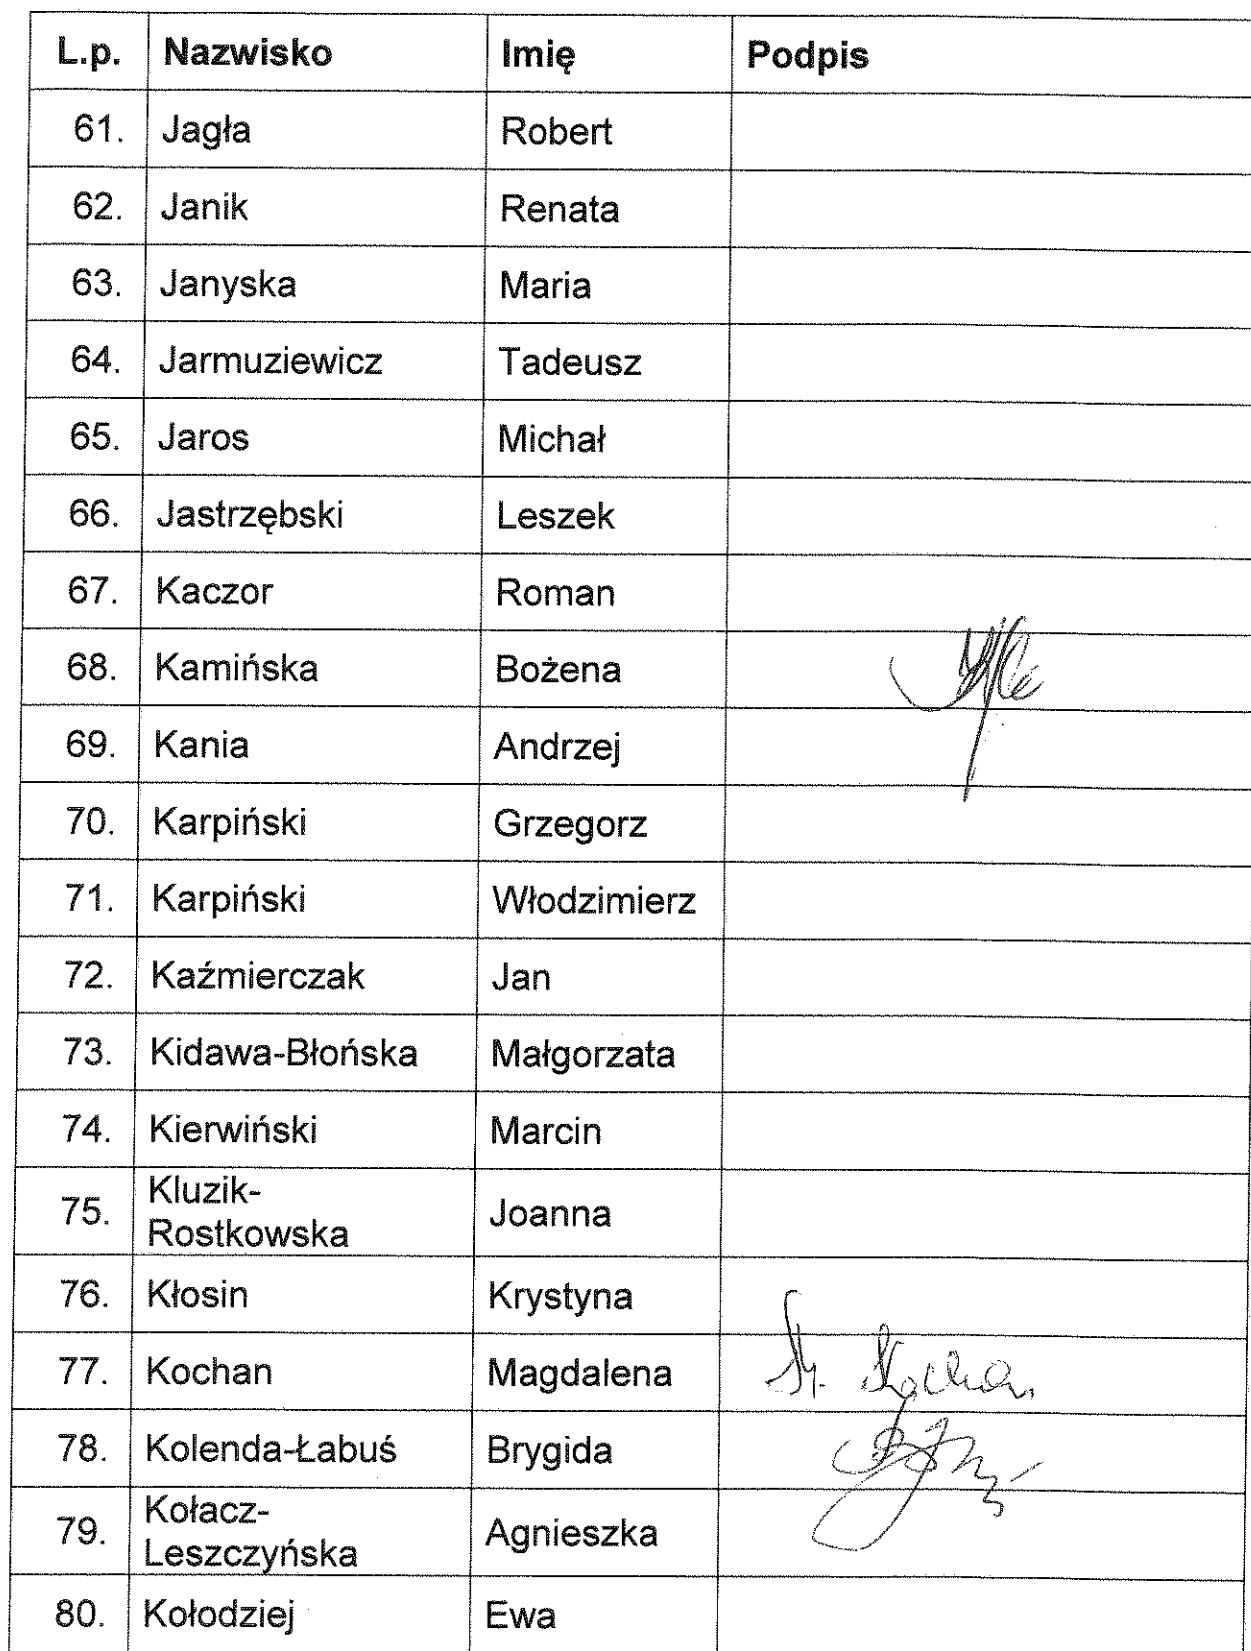 L.p. Nazwisko Imię Podpis
61. Jagła Robert
62. Janik Renata
63. Janyska Maria
64. Jarmuziewicz Tadeusz
65. Jaros Michał
66. Jastrzębski Leszek
67. Kaczor Roman
68. Kamińska Bożena
69. Kania Andrzej
70. Karpiński Grzegorz
71. Karpiński Włodzimierz
72. Kaźmierczak Jan
73. Kidawa-Błońska Małgorzata
74. Kierwiński Marcin
75. Kluzik-
Rostkowska Joanna
76. Kłosin Krystyna
77. Kochan Magdalena M. Kochan
78. Kolenda-Łabuś Brygida
79. Kołacz-
Leszczyńska Agnieszka
80. Kołodziej Ewa